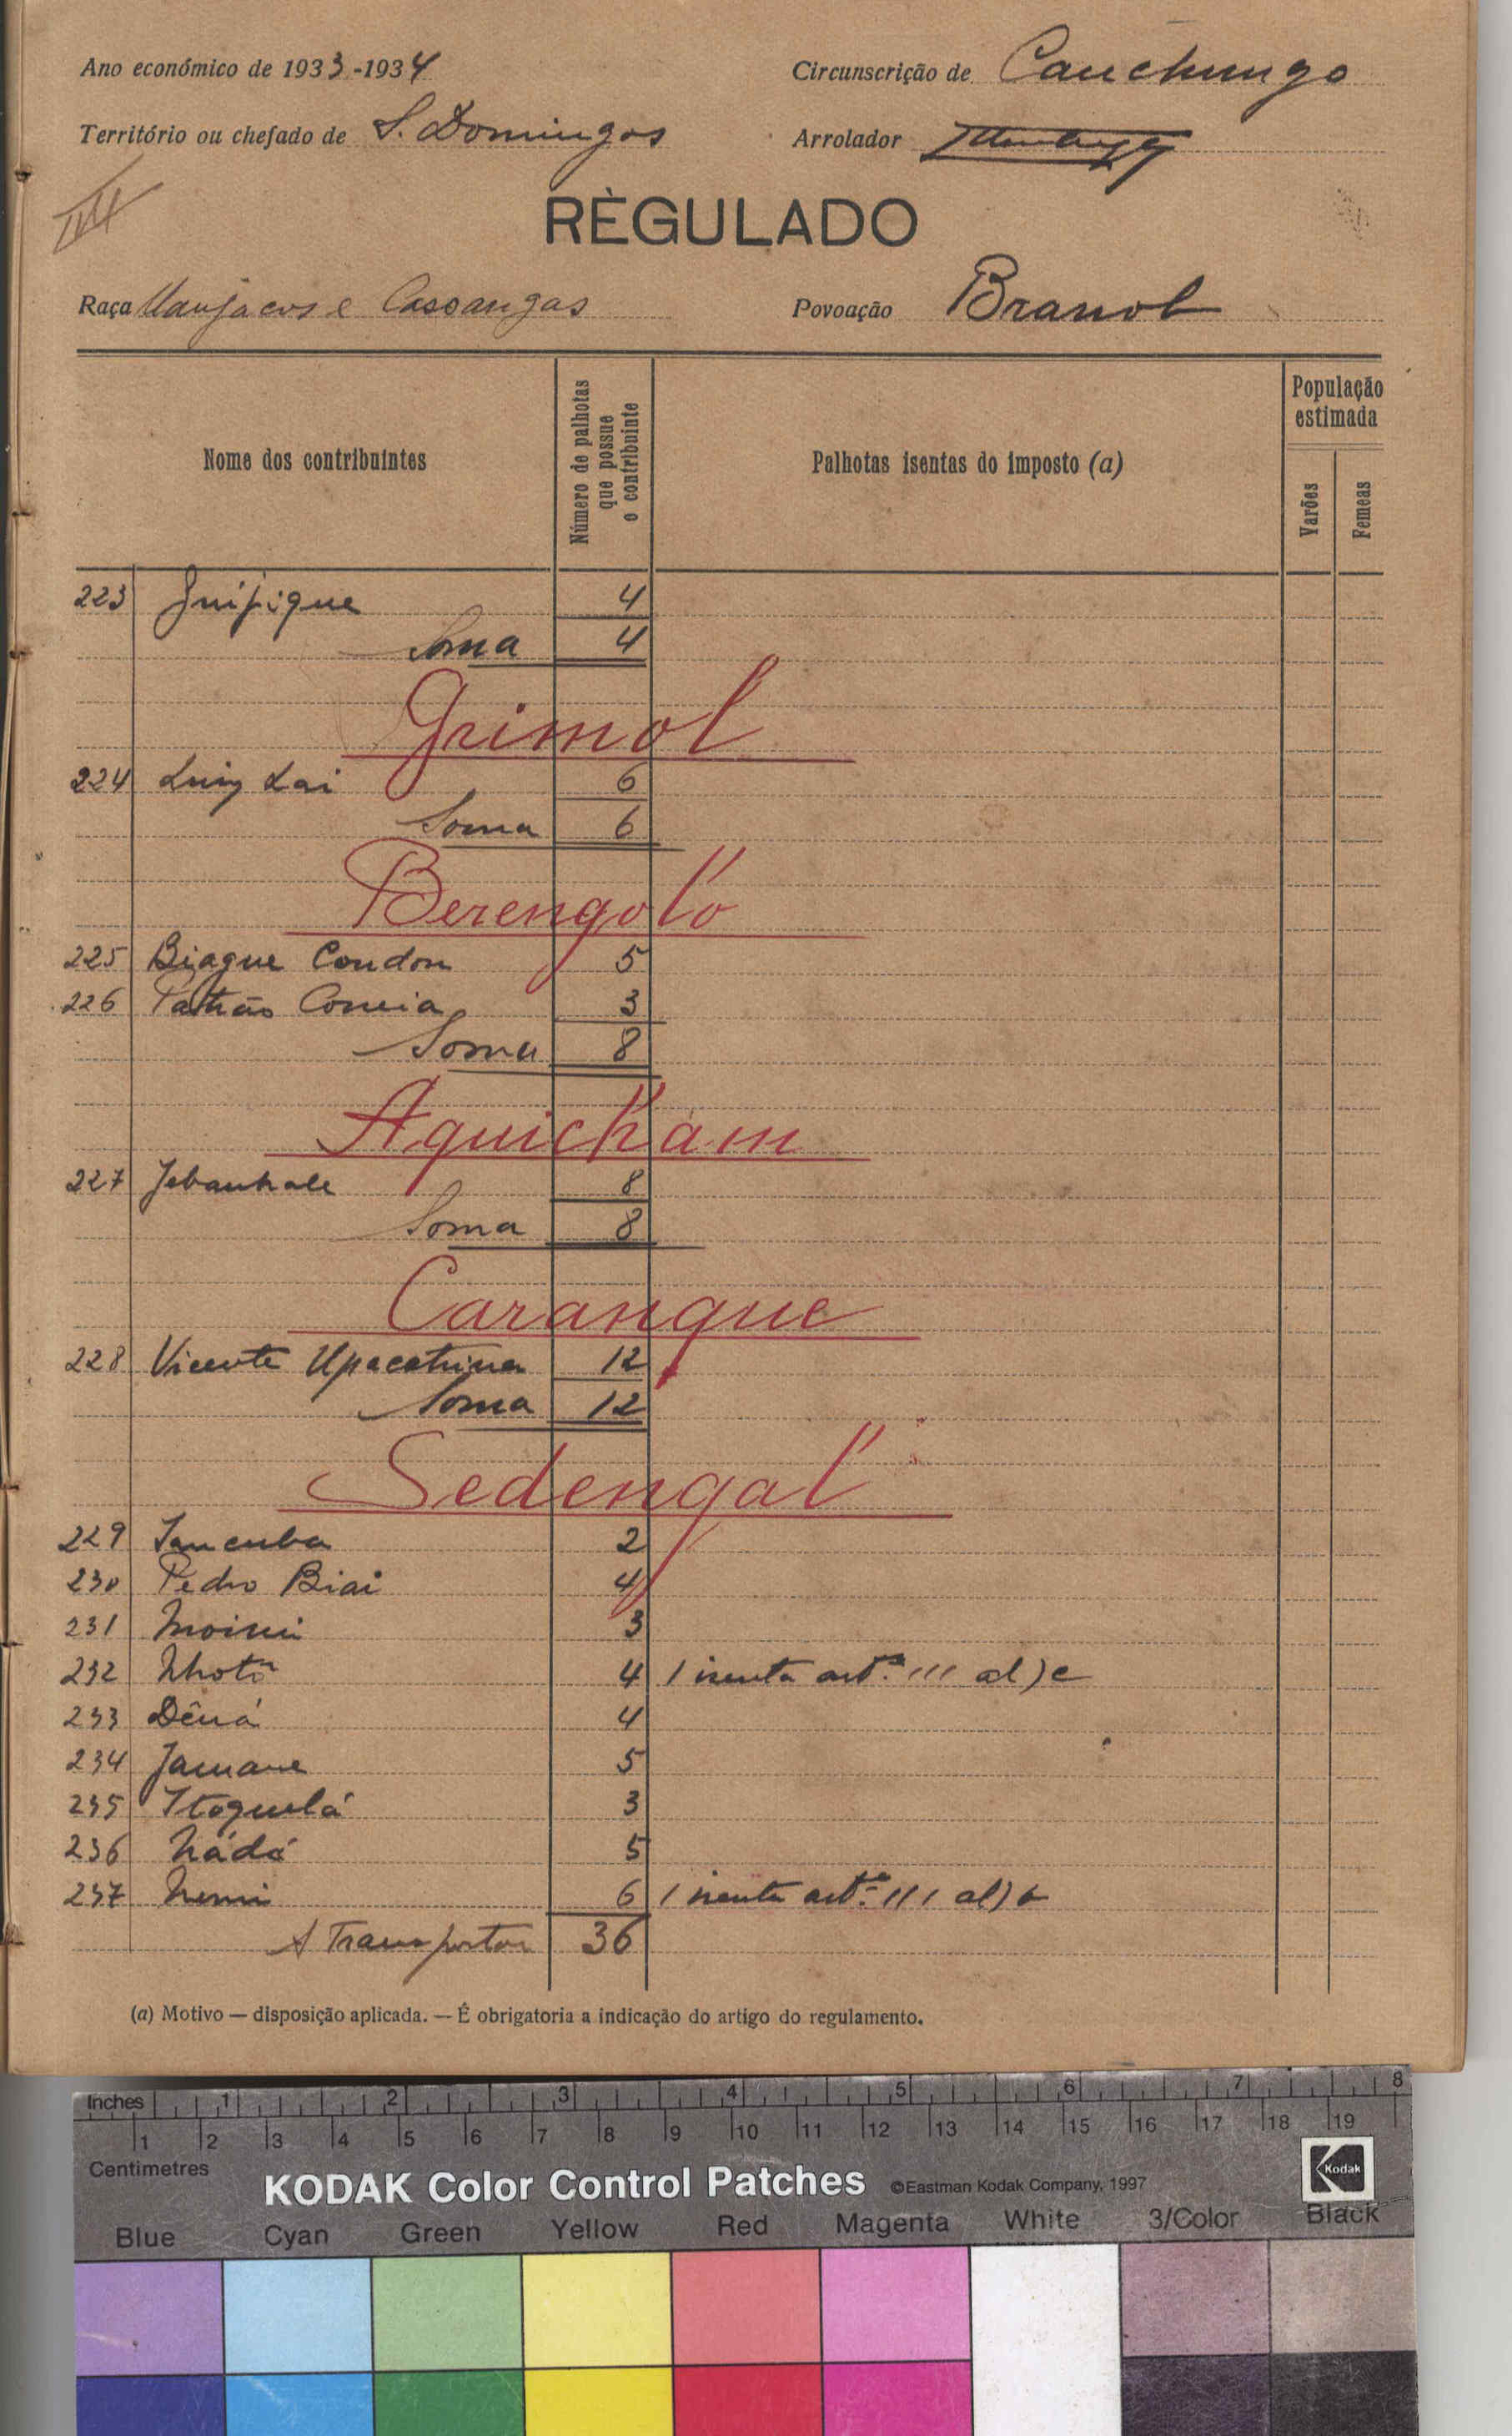 Ano económico de 1933-1934
Circunscrição de Canchungo
Território ou chefado de S. Domingos
Arrolador
RÈGULADO
Raça Manjacos e Cassangas
Povoação Branol
Nome dos contribuintes
Número de palhotas que possue o contribuinte
Palhotas isentas do imposto (a)
População estimada
Varões
Femeas
223 4
Soma 4
Grimol
224 Luiz Lai 6
Soma 6
Berengolo
225 Biague Condon 5
226 Patrão Correia 3
Soma 8
Aquicham
227 8
Soma 8
Caranque
228 Vicente 12
Soma 12
Sedengal
229 Sancuba 2
230 Pedro Biai 4
231 3
232 Nhotô 4 1 isenta artº 111 al) c
233 Dêná 4
234 5
235 3
236 Nádá 5
237 6 1 isenta artº 111 al)
A Transportar 36
(a) Motivo — disposição aplicada. — É obrigatoria a indicação do artigo do regulamento.
Inches 1 2 3 4 5 6 7 8
1 2 3 4 5 6 7 8 9 10 11 12 13 14 15 16 17 18 19
Centimetres
KODAK Color Control Patches ©Eastman Kodak Company, 1997 Kodak
Blue Cyan Green Yellow Red Magenta White 3/Color Black